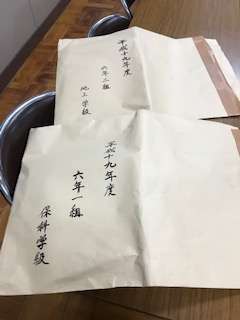 平成十九年度
六年二組
池上学級
平成十九年度
六年一組
保科学級